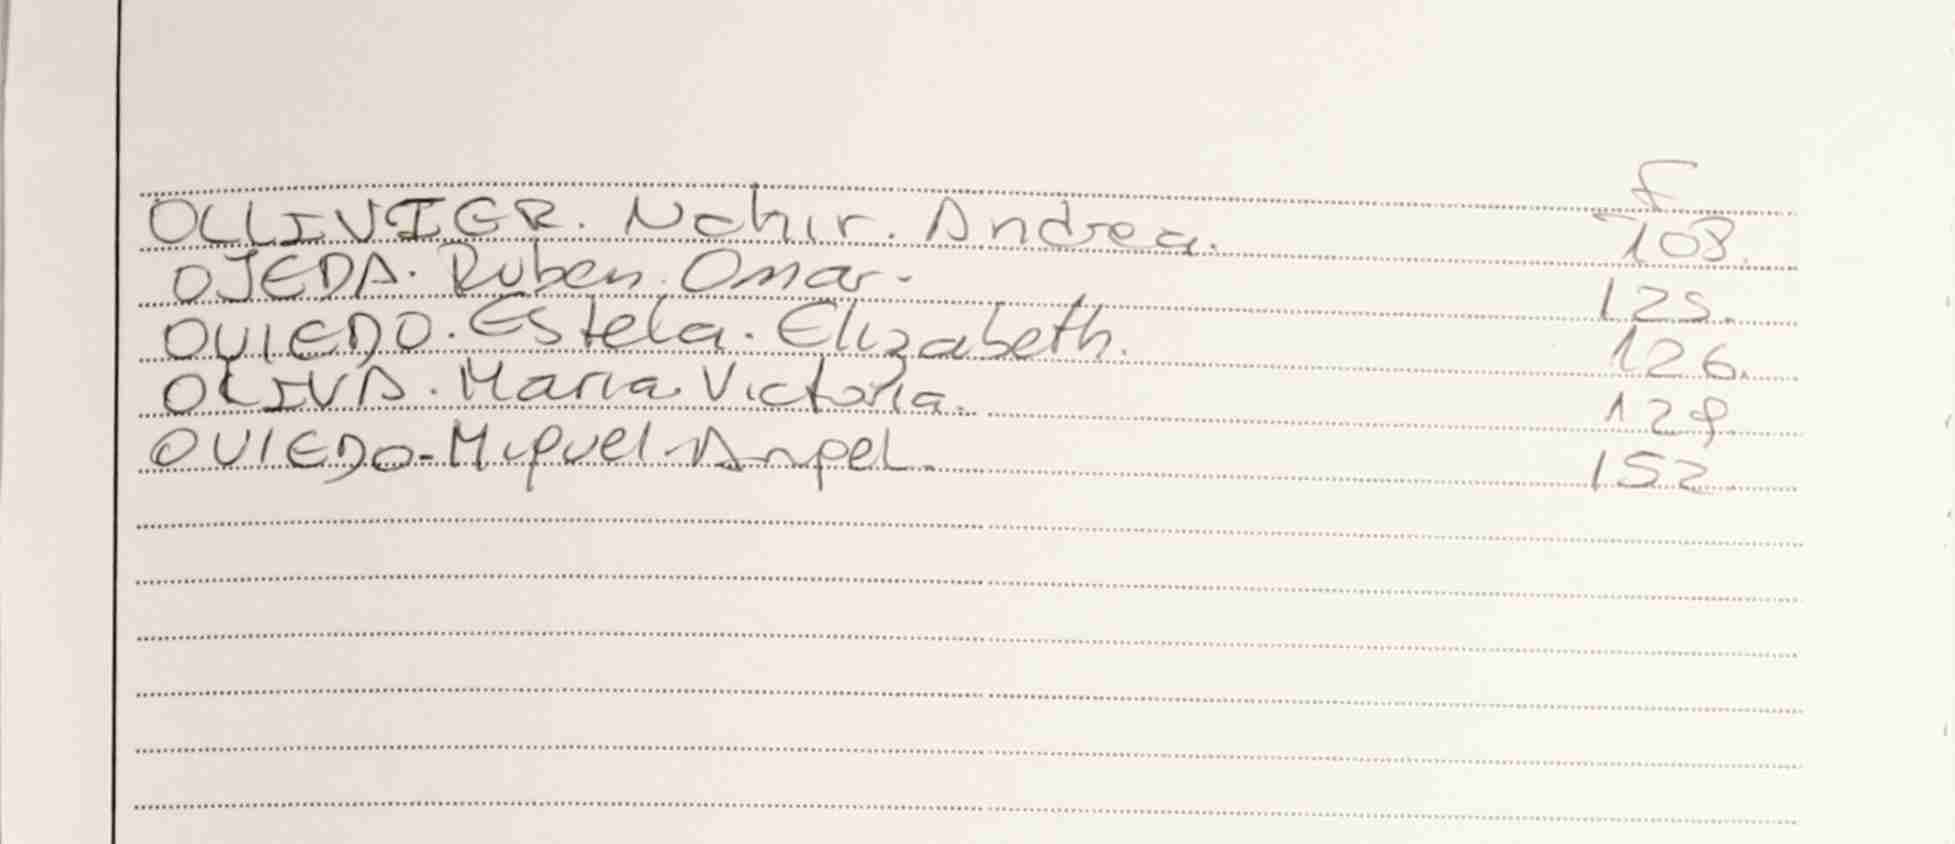 F
OLLIVIER. Nahir. Andrea. 108.
OJEDA. Ruben. Omar. 125.
OVIEDO. Estela. Elizabeth. 126.
OLIVA. Maria Victoria. 129.
OVIEDO-Miguel Angel. 152.